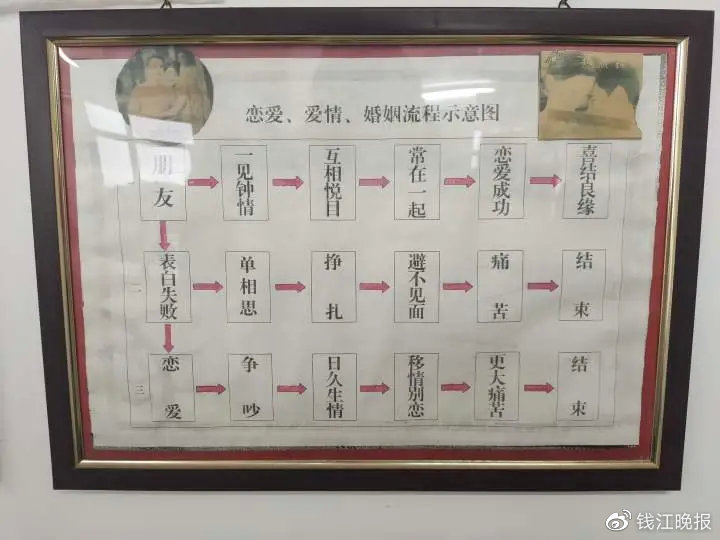 恋爱、爱情、婚姻流程示意图
朋友
一见钟情
互相悦目
常在一起
恋爱成功
喜结良缘
二
表白失败
单相思
挣扎
避不见面
痛苦
结束
三
恋爱
争吵
日久生情
移情别恋
更大痛苦
结束
钱江晚报